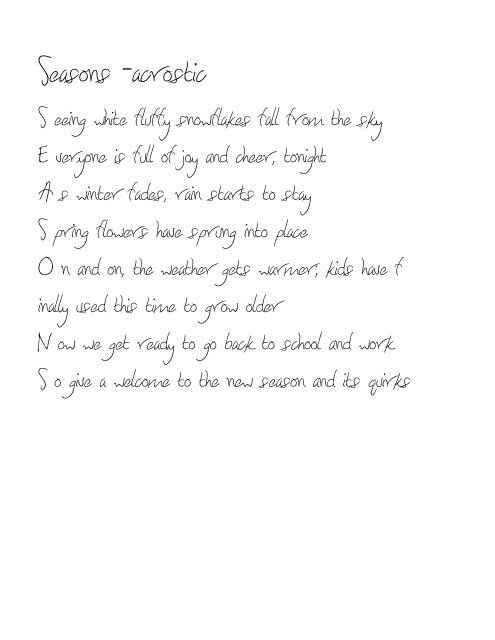 Seasons -acrostic
S eeing white fluffy snowflakes fall from the sky
E veryone is full of joy and cheer, tonight
A s winter fades, rain starts to stay
S pring flowers have sprung into place
O n and on, the weather gets warmer; kids have f
inally used this time to grow older
N ow we get ready to go back to school and work
S o give a welcome to the new season and its quirks